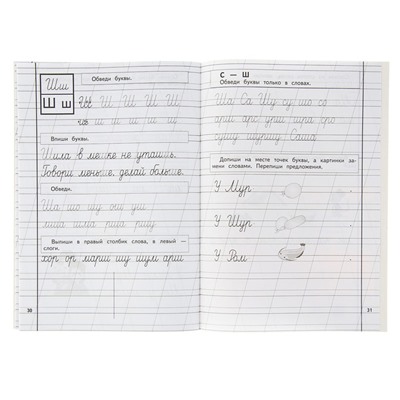 Шш
Ш ш
Обведи буквы.
Ш Ш Ш Ш
ш ш ш ш ш
Впиши буквы.
Шила в мешке не утаишь.
Говори меньше, делай больше.
Обведи.
Ша шо шу
Выпиши в правый столбик слова, в левый —
слоги.
хор ор марш шу шум арш
30
С — Ш
Обведи буквы только в словах.
Ша Са Шу су шо со
Саша
Допиши на месте точек буквы, а картинки за-
мени словами. Перепиши предложения.
У Мур
У Шур
У Ром
31